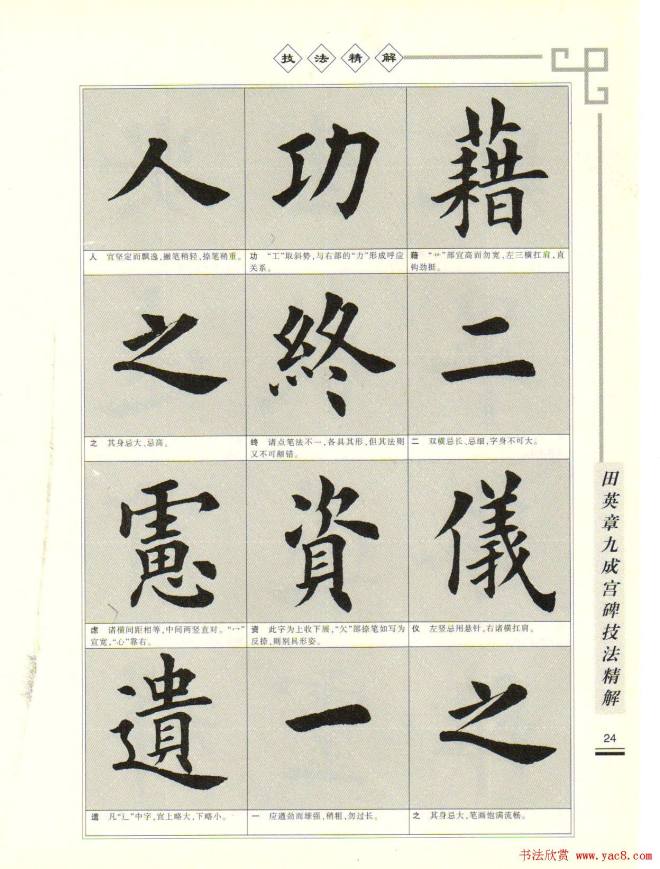 技法精解
人
功
藉
人 宜坚定而飘逸,撇笔稍轻,捺笔稍重。
功 “工”取斜势,与右部的“力”形成呼应
关系。
藉 “艹”部宜高而勿宽,左三横扛肩,直
钩劲挺。
之
終
二
之 其身忌大、忌高。
终 诸点笔法不一,各具其形,但其法则
又不可颠错。
二 双横忌长、忌细,字身不可大。
慮
資
儀
虑 诸横间距相等,中间两竖直对。“冖”
宜宽,“心”靠右。
资 此字为上收下展,“欠”部捺笔如写为
反捺,则别具形姿。
仪 左竖忌用悬针,右诸横扛肩。
遺
一
之
遗 凡“辶”中字,宜上略大,下略小。
一 应遒劲而雄强,稍粗,勿过长。
之 其身忌大,笔画饱满流畅。
田英章九成宫碑技法精解
24
书法欣赏 www.yac8.com